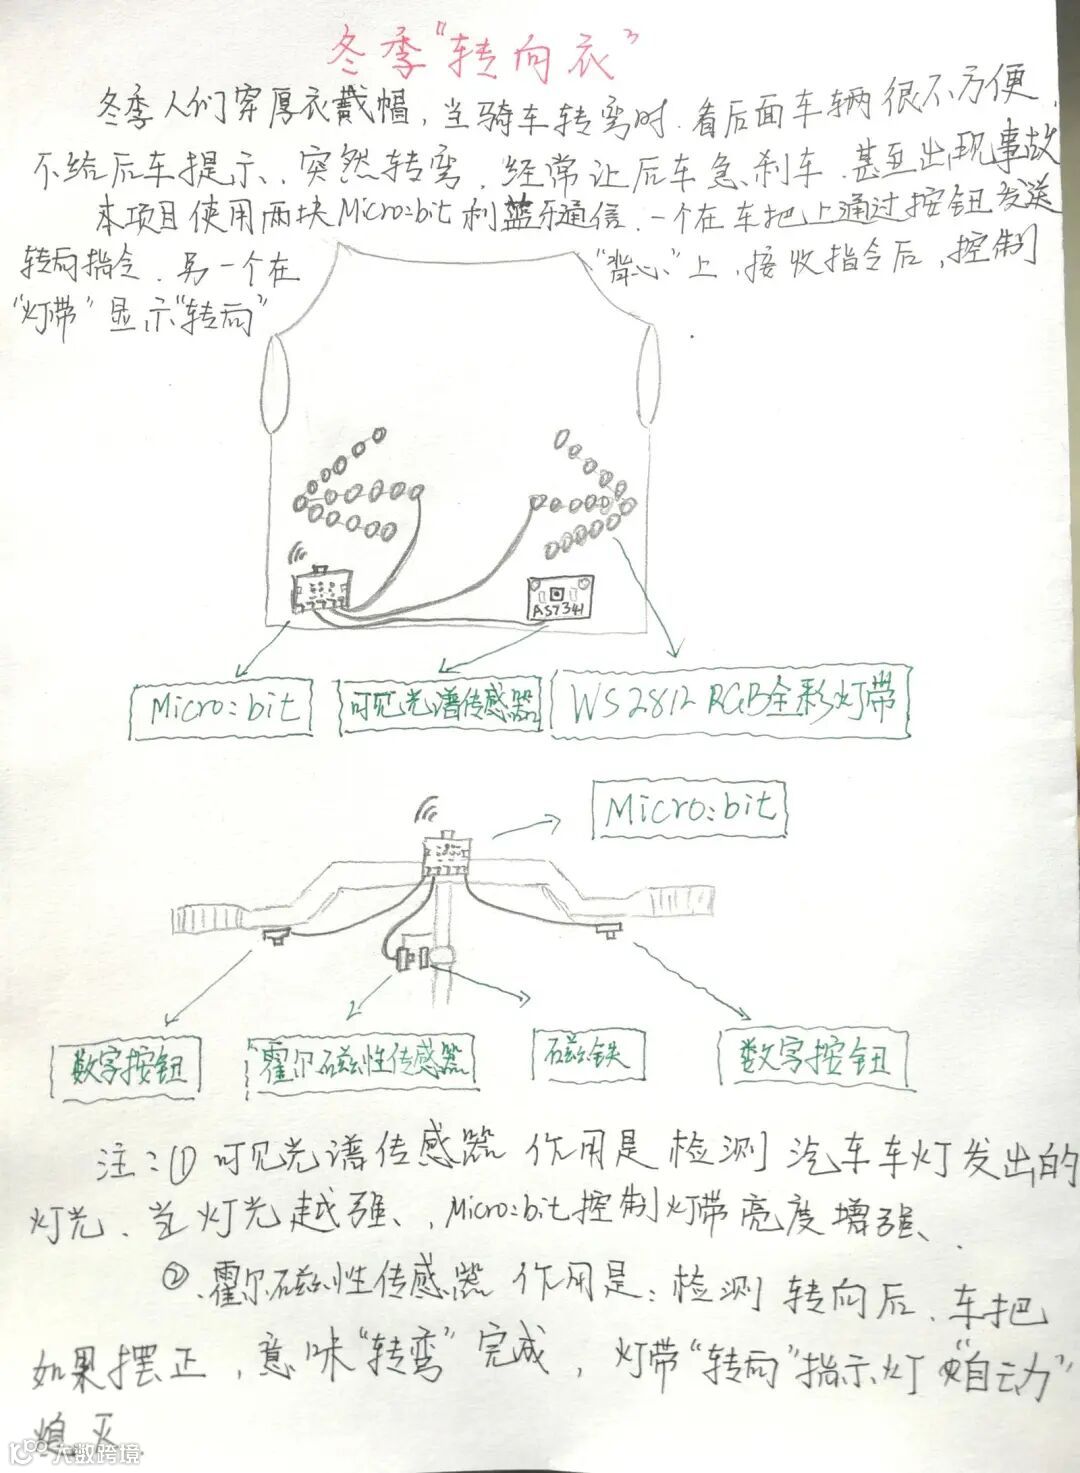 冬季“转向衣”
冬季人们穿厚衣戴帽，当骑车转弯时.看后面车辆很不方便，
不给后车提示、突然转弯，经常让后车急刹车.甚至出现事故
本项目使用两块Micro:bit利蓝牙通信.一个在车把上通过按钮发送
转向指令.另一个在
“背心”上，接收指令后，控制
“灯带”显示“转向”
AS7341
Micro:bit
可见光谱传感器
WS2812 RGB全彩灯带
Micro:bit
数字按钮
霍尔磁性传感器
磁铁
数字按钮
注：① 可见光谱传感器 作用是 检测 汽车车灯发出的
灯光、当灯光越强、，Micro:bit控制灯带亮度增强、.
②.霍尔磁性传感器 作用是：检测 转向后、车把
如果摆正，意味“转弯”完成，灯带“转向”指示灯“自动”
熄灭.
大数跨境